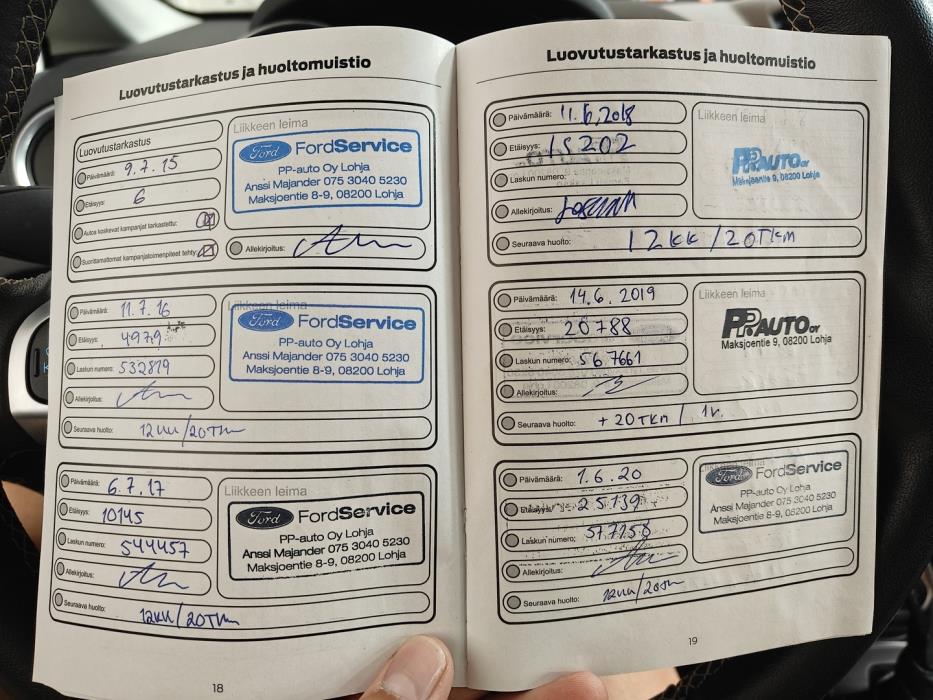 Luovutustarkastus ja huoltomuistio
Luovutustarkastus
Päivämäärä: 9.7.15
Etäisyys: 6
Autoa koskevat kampanjat tarkastettu:
Suorittamattomat kampanjatoimenpiteet tehty:
Liikkeen leima
Ford FordService
PP-auto Oy Lohja
Anssi Majander 075 3040 5230
Maksjoentie 8-9, 08200 Lohja
Allekirjoitus:
Päivämäärä: 11.7.16
Etäisyys: 4979
Laskun numero: 532819
Allekirjoitus:
Liikkeen leima
Ford FordService
PP-auto Oy Lohja
Anssi Majander 075 3040 5230
Maksjoentie 8-9, 08200 Lohja
Seuraava huolto: 12kk/20Tkm
Päivämäärä: 6.7.17
Etäisyys: 10145
Laskun numero: 544457
Allekirjoitus:
Liikkeen leima
Ford FordService
PP-auto Oy Lohja
Anssi Majander 075 3040 5230
Maksjoentie 8-9, 08200 Lohja
Seuraava huolto: 12kk/20Tkm
18
Luovutustarkastus ja huoltomuistio
Päivämäärä: 11.6.2018
Etäisyys: 15202
Laskun numero:
Allekirjoitus:
Liikkeen leima
PP-AUTO OY
Maksjoentie 9, 08200 Lohja
Seuraava huolto: 12KK/20TKM
Päivämäärä: 14.6.2019
Etäisyys: 20788
Laskun numero: 567661
Allekirjoitus:
Liikkeen leima
PP-AUTO OY
Maksjoentie 9, 08200 Lohja
Seuraava huolto: +20TKM / 1v.
Päivämäärä: 1.6.20
Etäisyys: 25139
Laskun numero: 577258
Allekirjoitus:
Liikkeen leima
Ford FordService
PP-auto Oy Lohja
Anssi Majander 075 3040 5230
Maksjoentie 8-9, 08200 Lohja
Seuraava huolto: 12kk/20tkm
19